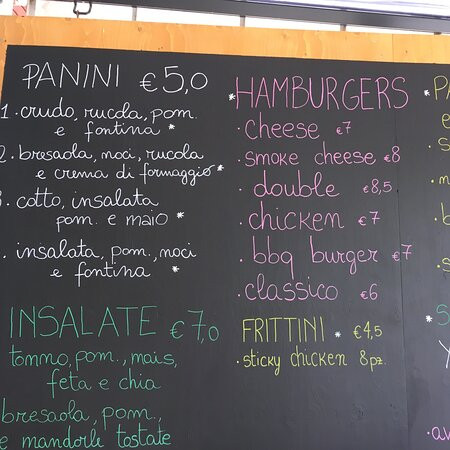 PANINI €5,0
1. crudo, rucola, pom.
e fontina *
2. bresaola, noci, rucola
e crema di formaggio *
3. cotto, insalata
pom. e maio *
. insalata, pom., noci
e fontina *
INSALATE €7,0
tonno, pom., mais,
feta e chia
bresaola, pom.,
e mandorle tostate
*HAMBURGERS
· cheese €7
· smoke cheese €8
· double €8,5
· chicken €7
· bbq burger €7
· classico €6
FRITTINI * €4,5
· sticky chicken 8pz.